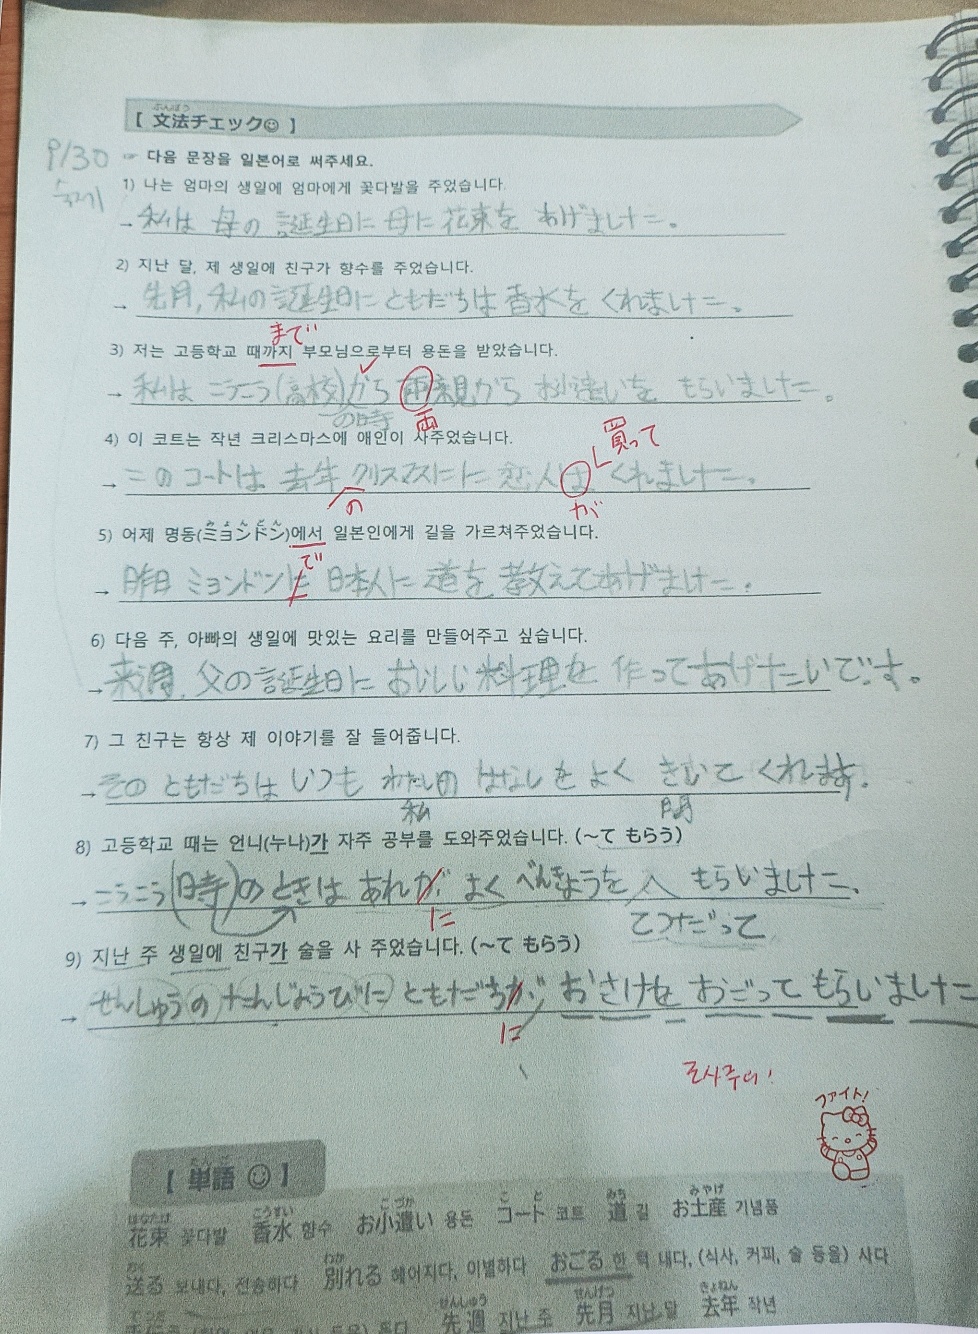 ぶんぽう
【 文法チェック☺ 】
9/30
숙제
☞ 다음 문장을 일본어로 써주세요.
1) 나는 엄마의 생일에 엄마에게 꽃다발을 주었습니다.
→ 私は 母の 誕生日に 母に 花束を あげました。
2) 지난 달, 제 생일에 친구가 향수를 주었습니다.
→ 先月, 私の誕生日に ともだちは 香水を くれました。
まで
3) 저는 고등학교 때까지 부모님으로부터 용돈을 받았습니다.
→ 私は こうこう(高校)から 両親から お小遣いを もらいました。
の時 両
4) 이 코트는 작년 크리스마스에 애인이 사주었습니다.
買って
→ このコートは 去年 クリスマスに 恋人は くれました。
の が
ミョンドン
5) 어제 명동(ミョンドン)에서 일본인에게 길을 가르쳐주었습니다.
で
→ 昨日 ミョンドンに 日本人に 道を 教えてあげました。
6) 다음 주, 아빠의 생일에 맛있는 요리를 만들어주고 싶습니다.
→ 来週, 父の誕生日に おいしい 料理を 作ってあげたいです。
7) 그 친구는 항상 제 이야기를 잘 들어줍니다.
→ その ともだちは いつも わたしの はなしを よく きいて くれます。
私
8) 고등학교 때는 언니(누나)가 자주 공부를 도와주었습니다. (～て もらう)
→ こうこう(時)の ときは あれが よく べんきょうを もらいました。
に てつだって
9) 지난 주 생일에 친구가 술을 사 주었습니다. (～て もらう)
→ せんしゅうの たんじょうびに ともだちが おさけを おごって もらいました
に
조사주의!
ファイト!
【 単語 ☺ 】
はなたば こうすい こづか こと みち みやげ
花束 꽃다발 香水 향수 お小遣い 용돈 コート 코트 道 길 お土産 기념품
おく わか
送る 보내다, 전송하다 別れる 헤어지다, 이별하다 おごる 한 턱 내다, (식사, 커피, 술 등을) 사다
せんしゅう せんげつ きょねん
先週 지난 주 先月 지난 달 去年 작년